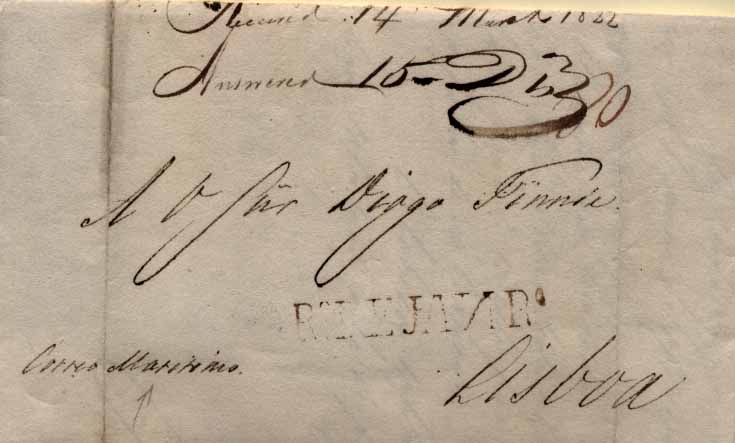 Received 14 March 1822
Answered 15 Do
A V Snr Diogo Finnie.
Rº DE JANRº
Correo Maritimo.
Lisboa